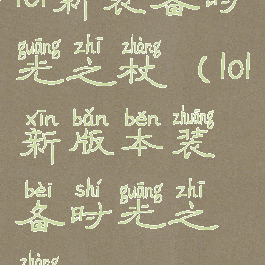 lol新装备时
guāng zhī zhàng
光之杖（lol
xīn bǎn běn zhuāng
新版本装
bèi shí guāng zhī
备时光之
zhàng